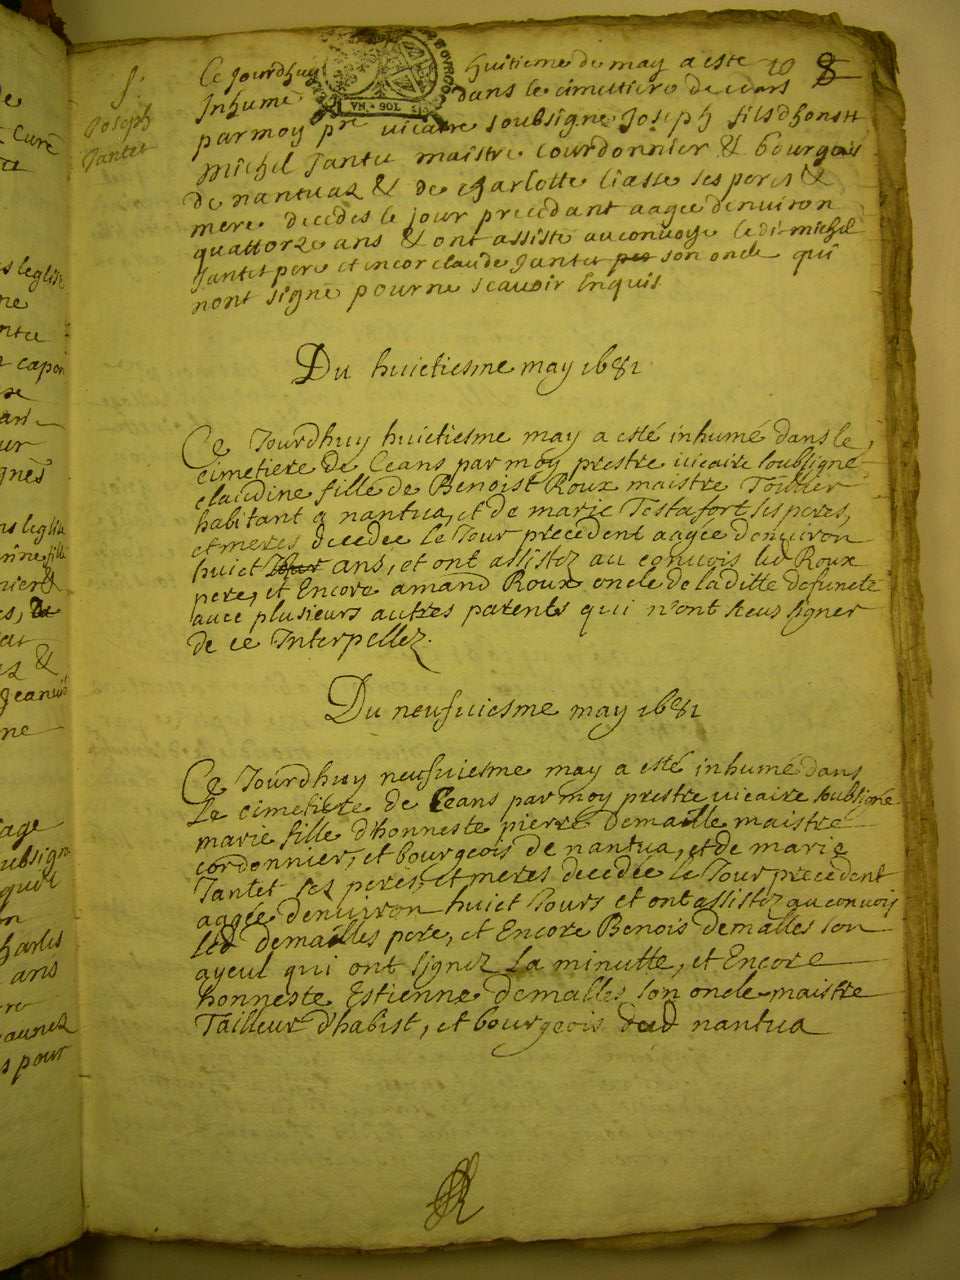 S.
Joseph
Jantet
Ce Jourdhuy huitieme de may a este 10 8
Inhumé dans le cimettiere de ceans
par moy pre vicaire soubsigné Joseph fils dhonste
Michel Jantet maistre courdonnier & bourgois
de nantuaz & de charlotte liasse ses peres &
mere decedes le jour precedant aagée denuiron
quattorze ans & ont assisté au conuoye ledit michel
Jantet pere et encor claude Jantet son oncle qui
nont signé pour ne scauoir Enquis
Du huictiesme may 1681
Ce Jourdhuy huictiesme may a esté inhumé dans le
cimetiere de Ceans par moy prestre vicaire soubsigné
claudine fille de Benoist Roux maistre Tollier
habitant a nantua, et de marie Testafort ses peres,
et meres decedée le Jour precedent aagée d'enuiron
huict ans, et ont assistez au conuois lid Roux
pere, et Encore amand Roux oncle de laditte defuncte
auec plusieurs autres parents qui n'ont sceus signer
de ce Interpellez.
Du neufuiesme may 1681
Ce Jourdhuy neufuiesme may a esté inhumé dans
le cimetiere de Ceans par moy prestre vicaire soubsigné
marie fille d'honneste pierre Demaille maistre
cordonnier, et bourgeois de nantua, et de marie
Jantet ses peres, et meres decedée le Jour precedent
aagée denuiron huict Jours et ont assistez au conuois
led demailles pere, et Encore Benois demalles son
ayeul qui ont signez la minutte, et Encore
honneste Estienne demalles son oncle maistre
Tailleur d'habist, et bourgeois dud nantua